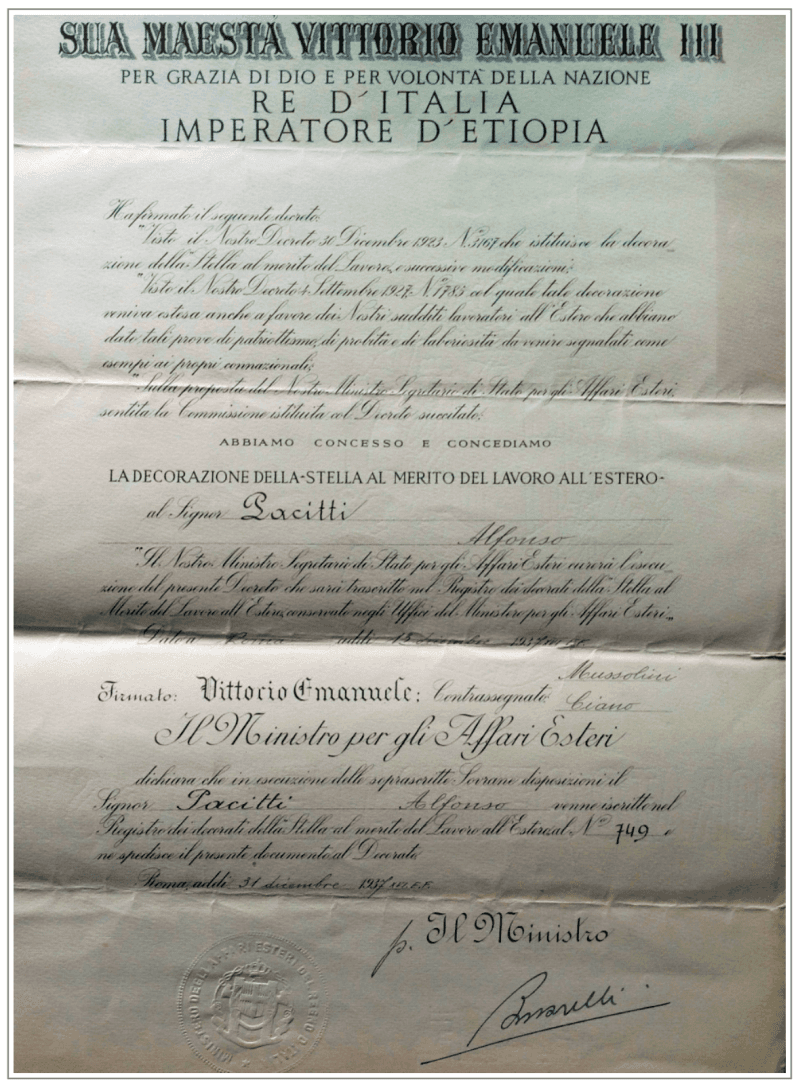 SUA MAESTA VITTORIO EMANUELE III
PER GRAZIA DI DIO E PER VOLONTA DELLA NAZIONE
RE D'ITALIA
IMPERATORE D'ETIOPIA
Ha firmato il seguente decreto:
"Visto il Nostro Decreto 30 Dicembre 1923 N. 3167 che istituisce la decora-
zione della Stella al merito del Lavoro, e successive modificazioni;
"Visto il Nostro Decreto 4 Settembre 1927 N. 1785 col quale tale decorazione
veniva estesa anche a favore dei Nostri sudditi lavoratori all'Estero che abbiano
dato tali prove di patriottismo, di probità e di laboriosità da venire segnalati come
esempi ai propri connazionali;
"Sulla proposta del Nostro Ministro Segretario di Stato per gli Affari Esteri,
sentita la Commissione istituita col Decreto succitato;
ABBIAMO CONCESSO E CONCEDIAMO
LA DECORAZIONE DELLA-STELLA AL MERITO DEL LAVORO ALL'ESTERO-
al Signor Pacitti
Alfonso
"Il Nostro Ministro Segretario di Stato per gli Affari Esteri curerà l'esecu-
zione del presente Decreto che sarà trascritto nel Registro dei decorati della Stella al
Merito del Lavoro all'Estero, conservato negli Uffici del Ministero per gli Affari Esteri.„
Dato a Roma addì 1937
Mussolini
Firmato: Vittorio Emanuele; Contrassegnato: Ciano
Il Ministro per gli Affari Esteri
dichiara che in esecuzione delle soprascritte Sovrane disposizioni il
Signor Pacitti Alfonso venne iscritto nel
Registro dei decorati della Stella al merito del Lavoro all'Estero, al N. 749 e
ne spedisce il presente documento al Decorato.
Roma, addì 31 dicembre 1937
p. Il Ministro
MINISTERO DEGLI AFFARI ESTERI DEL REGNO D'ITALIA